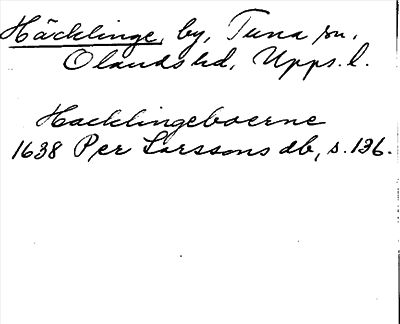 Häcklinge, by, Tuna sn,
Olands hd, Upps. l.
Hacklingeboerne
1638 Per Larssons db, s. 136.